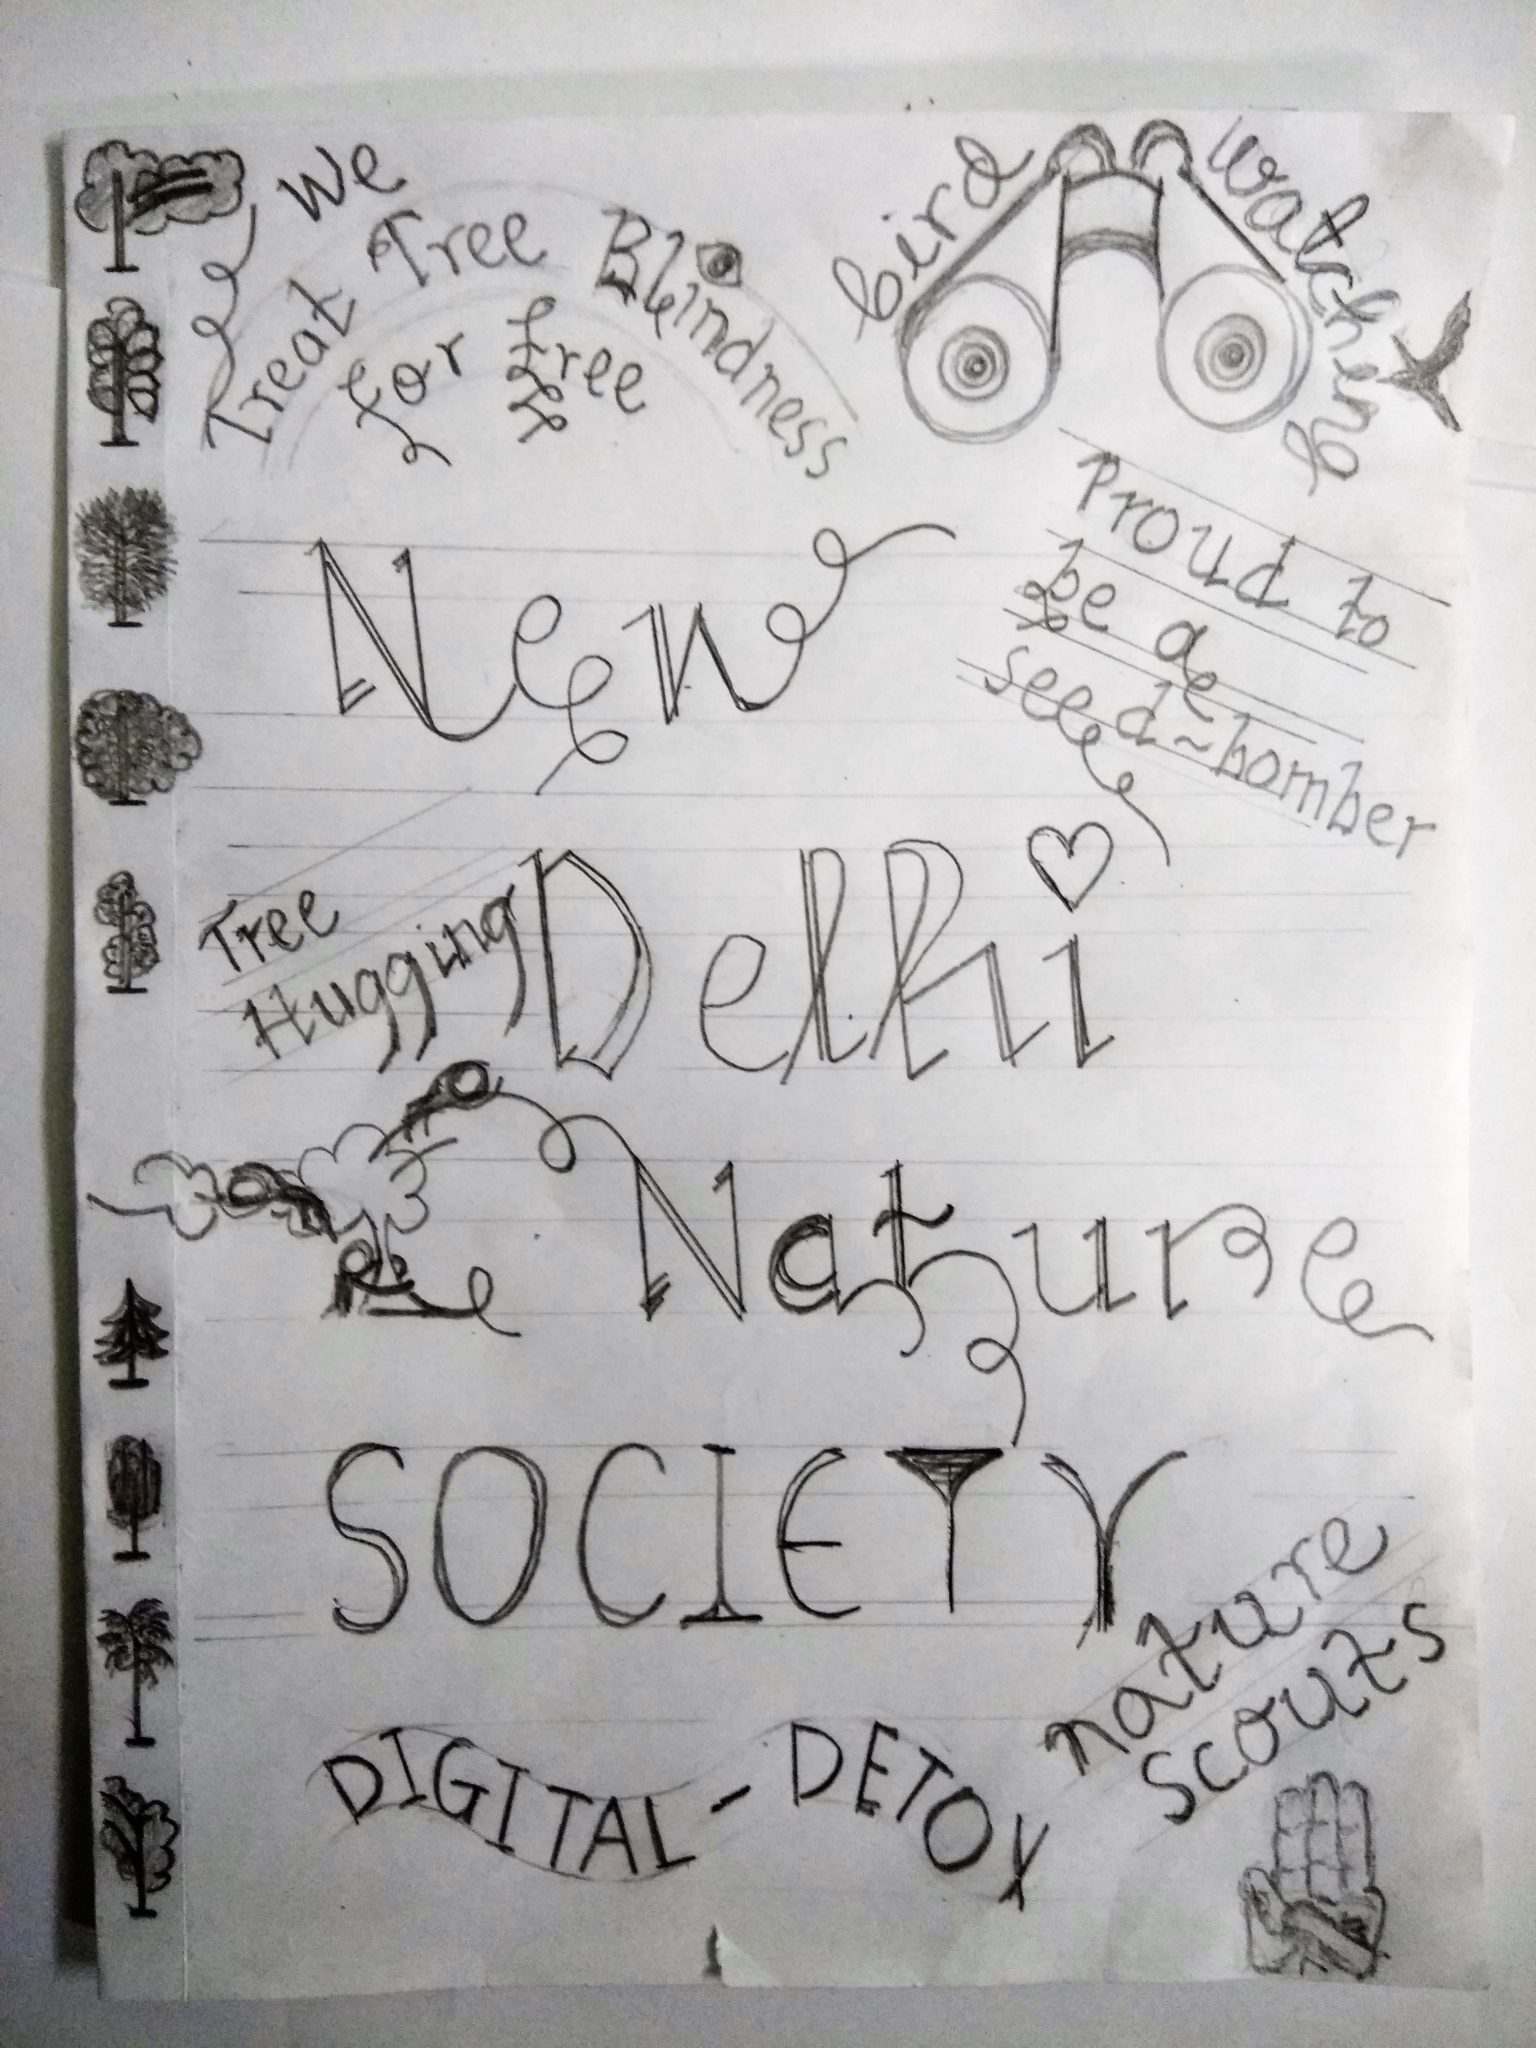 We
Treat Tree Blindness
for free
bird watching
Proud to
be a
seed-bomber
New
Tree
Hugging
Delhi
Nature
SOCIETY
nature
scouts
DIGITAL-DETOX